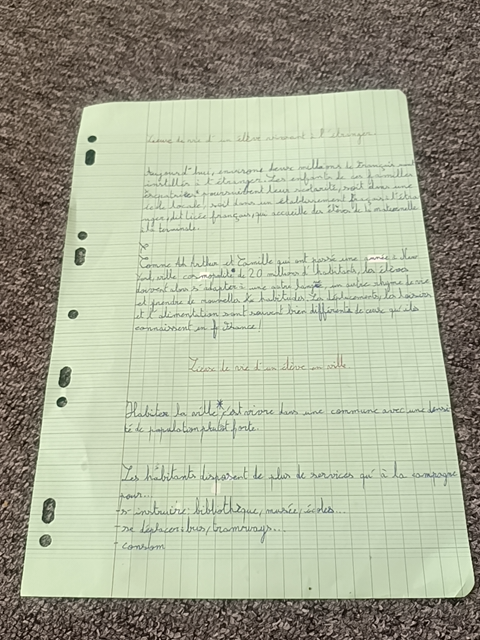 Lieux de vie d'un élève vivant à l'étranger.
Aujourd'hui, environs deux millions de français sont
installer à l'étranger. Les enfants de ses familles
expatriées* poursuivent leur scolarité, soit dans une
école locale, soit dans un établissement français à l'étra
nger, dit lycée français, qui accueille des élèves de la maternelle
à la terminale.
Comme Arthur et Camille qui ont passé une année à New
York, ville cosmopolite* de 20 millions d'habitants, les élèves
doivent alors s'adapter à une autre langue, un autre rhyme de vie
et prendre de nouvelles habitudes. Les déplacements, les loisirs
et l'alimentation sont souvent bien différents de ceux qu'ils
connaissent en France!
Lieux de vie d'un élève en ville
Habiter la ville* c'est vivre dans une commune avec une densi
té de population plutôt forte.
Les habitants disposent de plus de services qu'à la campagne
pour...
- s'instruire: bibliothèque, musée, écoles...
- se déplacer: bus, tramways...
- consom